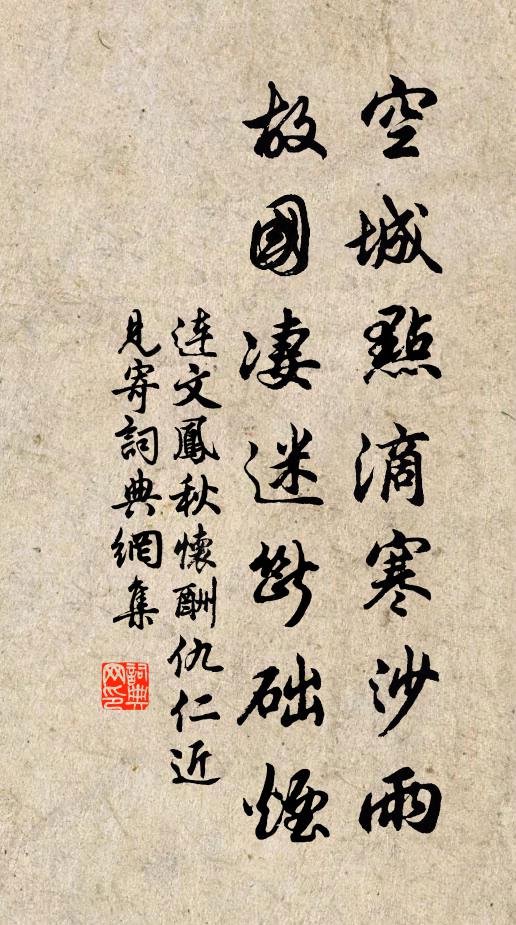 空城點滴寒沙雨
故國淒迷斷础煙
连文鳳秋懷酬仇仁近
見寄詞典網集
詞典
网印